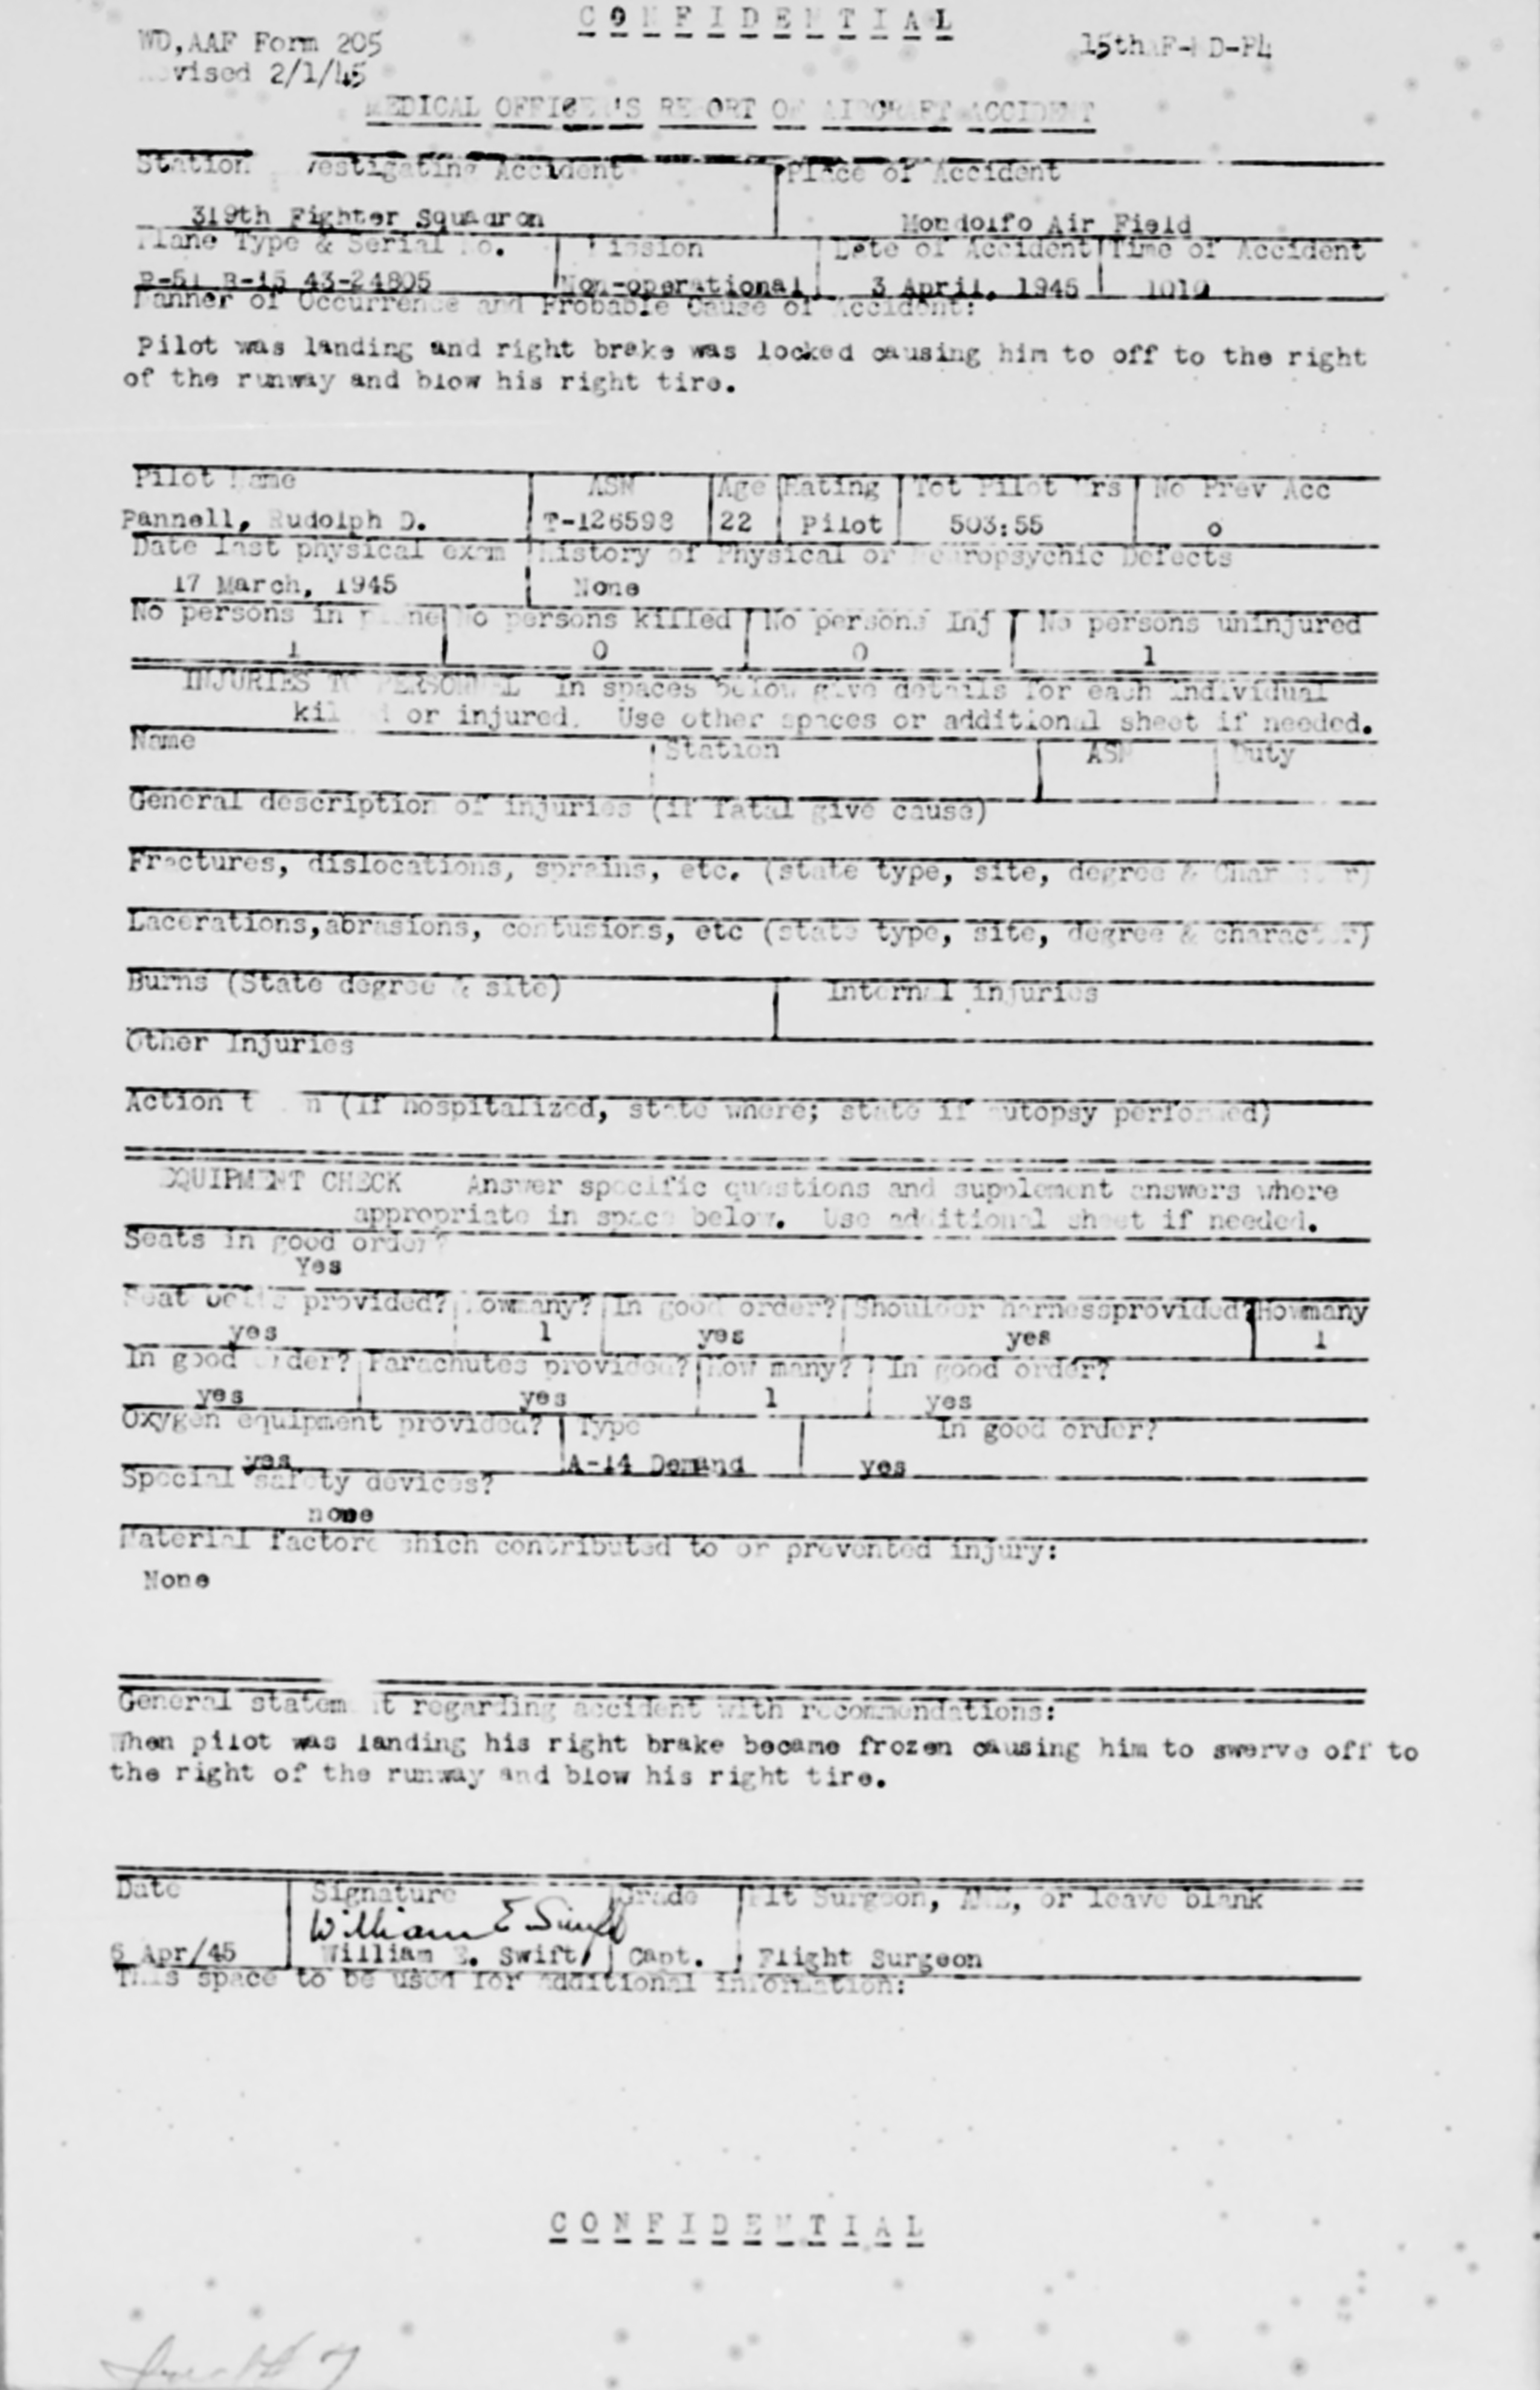 CONFIDENTIAL
WD,AAF Form 205
15th
vised 2/1/45
MEDICAL OFFICER'S REPORT OF AIRCRAFT ACCIDENT
Station vestigating Accident Place of Accident
319th Fighter Squadron Mondolfo Air Field
Plane Type & Serial No. Mission Date of Accident Time of Accident
43-24805 Non-operational 3 April, 1945 1010
Manner of Occurrence and Probable Cause of Accident:
Pilot was landing and right brake was locked causing him to off to the right
of the runway and blow his right tire.
Pilot Name ASN Age Rating Tot Pilot Hrs No Prev Acc
Pannell, Rudolph D. T-126598 22 Pilot 503:55 0
Date last physical exam History of Physical or Neuropsychic Defects
17 March, 1945 None
No persons in plane No persons killed No persons Inj No persons uninjured
1 0 0 1
INJURIES TO PERSONNEL In spaces below give details for each individual
killed or injured. Use other spaces or additional sheet if needed.
Name Station ASN Duty
General description of injuries (if fatal give cause)
Fractures, dislocations, sprains, etc. (state type, site, degree & Character)
Lacerations,abrasions, contusions, etc (state type, site, degree & character)
Burns (State degree & site) Internal injuries
Other Injuries
Action taken (If hospitalized, state where; state if autopsy performed)
EQUIPMENT CHECK Answer specific questions and supplement answers where
appropriate in space below. Use additional sheet if needed.
Seats in good order?
Yes
Seat belts provided? Howmany? In good order? Shoulder harnessprovided? Howmany
yes 1 yes yes 1
In good order? Parachutes provided? How many? In good order?
yes yes 1 yes
Oxygen equipment provided? Type In good order?
yes A-14 Demand yes
Special safety devices?
none
Material factors which contributed to or prevented injury:
None
General statement regarding accident with recommendations:
When pilot was landing his right brake became frozen causing him to swerve off to
the right of the runway and blow his right tire.
Date Signature Grade Flt Surgeon, AME, or leave blank
William E Swift
6 Apr/45 William E. Swift Capt. Flight Surgeon
This space to be used for additional information:
CONFIDENTIAL